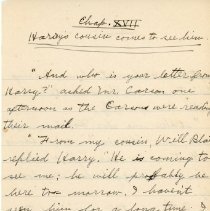 Chap. XVII
Harrys cousin comes to see him.
"And who is your letter from
Harry?" asked Mr Carson one
afternoon as the Carsons were reading
their mail.
"From my cousin, Will Blai
replied Harry. "He is coming to
see me; he will probably be
here to-morrow. I haven't
seen him for a long time. I